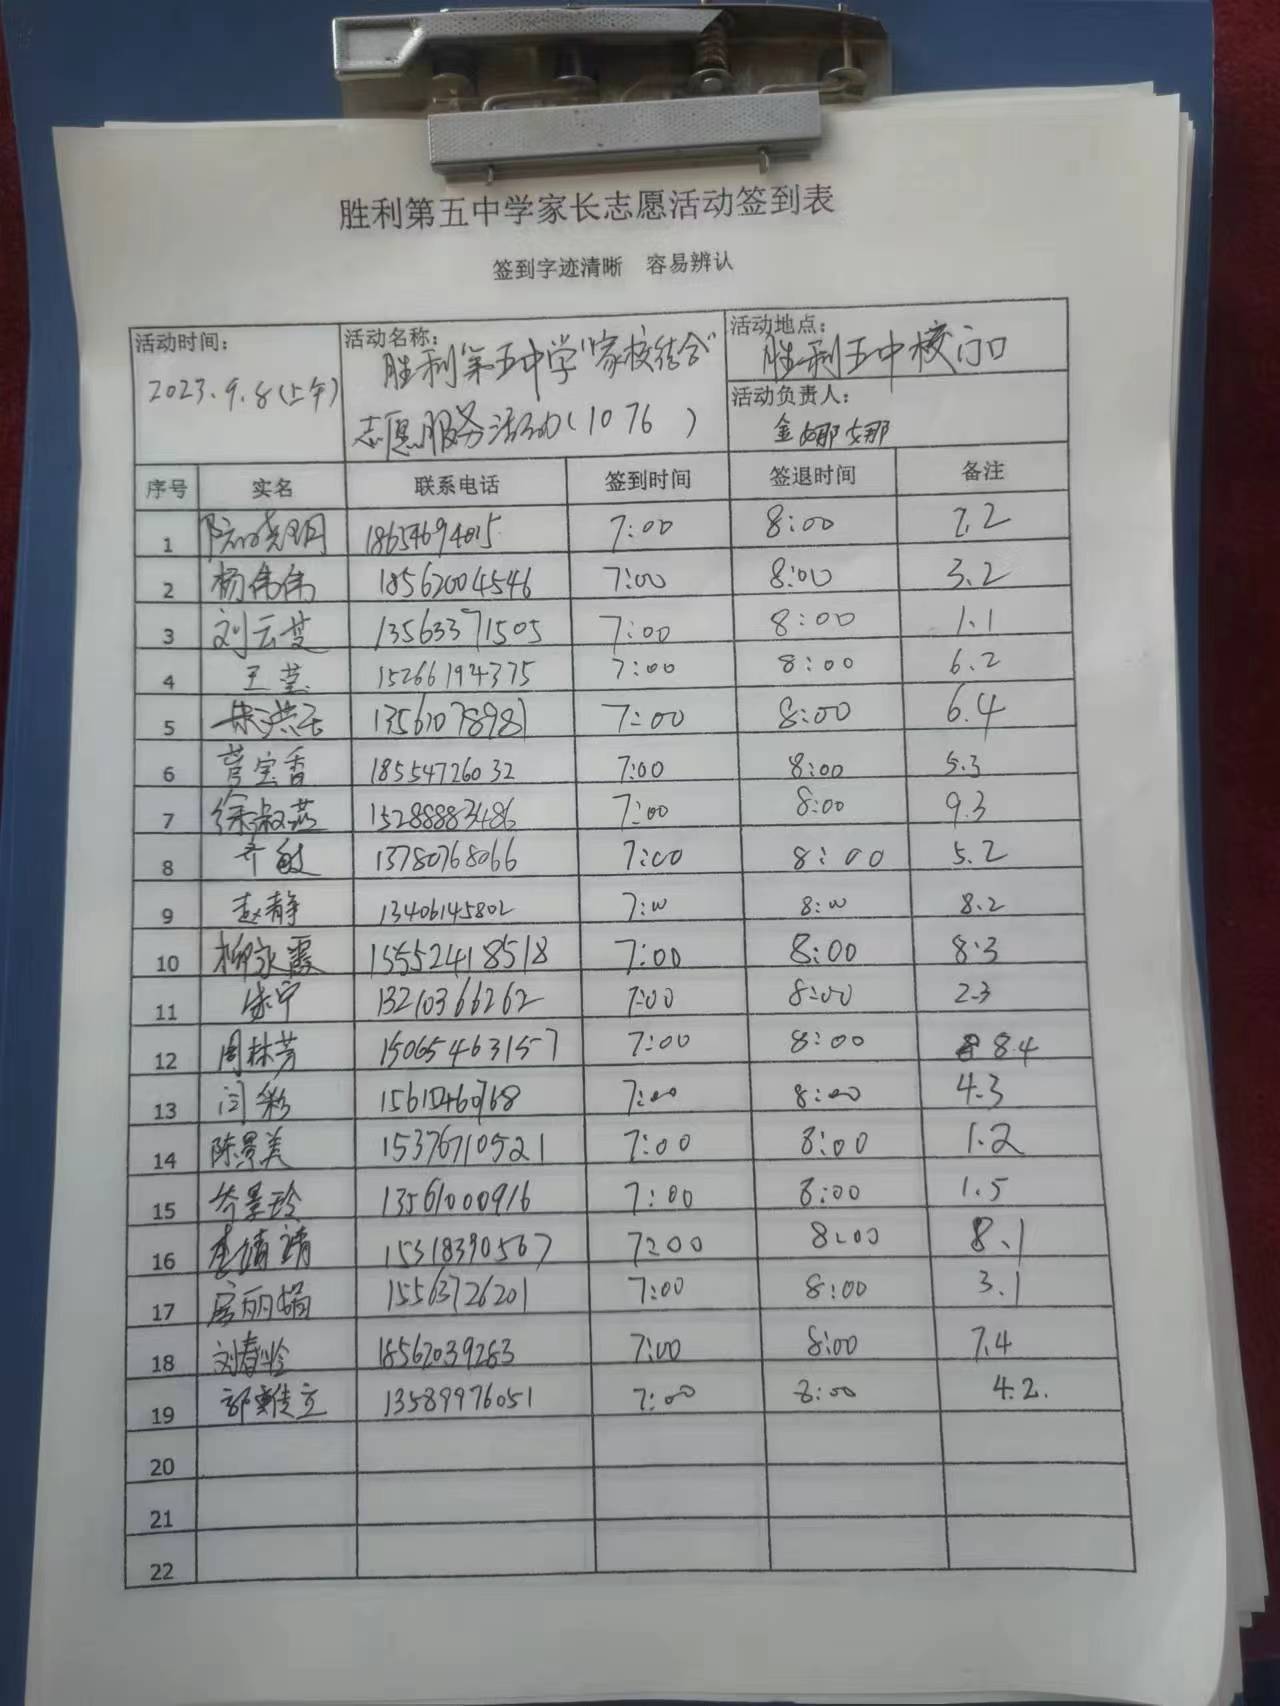 胜利第五中学家长志愿活动签到表
签到字迹清晰 容易辨认
活动时间: 2023.9.8(上午)
活动名称: 胜利第五中学"家校结合"
志愿服务活动(1076)
活动地点: 胜利五中校门口
活动负责人: 金娜娜
序号 实名 联系电话 签到时间 签退时间 备注
1 18654694015 7:00 8:00 7.2
2 杨伟伟 18562004546 7:00 8:00 3.2
3 刘云 13563371505 7:00 8:00 1.1
4 王莹 15266194375 7:00 8:00 6.2
5 13561078981 7:00 8:00 6.4
6 宝香 18554726032 7:00 8:00 5.3
7 徐淑燕 15288883486 7:00 8:00 9.3
8 齐敏 13780768066 7:00 8:00 5.2
9 赵静 13406145802 7:00 8:00 8.2
10 柳永霞 15552418518 7:00 8:00 8.3
11 13210366262 7:00 8:00 2.3
12 周林芳 15065463157 7:00 8:00 8.4
13 闫彩 15615460768 7:00 8:00 4.3
14 陈景美 15376710521 7:00 8:00 1.2
15 景玲 13561000916 7:00 8:00 1.5
16 李靖靖 15318390567 7:00 8:00 8.1
17 房丽娟 15563726201 7:00 8:00 3.1
18 刘春玲 18562039283 7:00 8:00 7.4
19 立 13589976051 7:00 8:00 4.2.
20
21
22